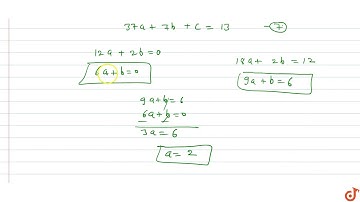 37a + 7b + c = 13 — 7
12a + 2b = 0
6a + b = 0
18a + 2b = 12
9a + b = 6
9a + b = 6
6a + b = 0
3a = 6
a = 2